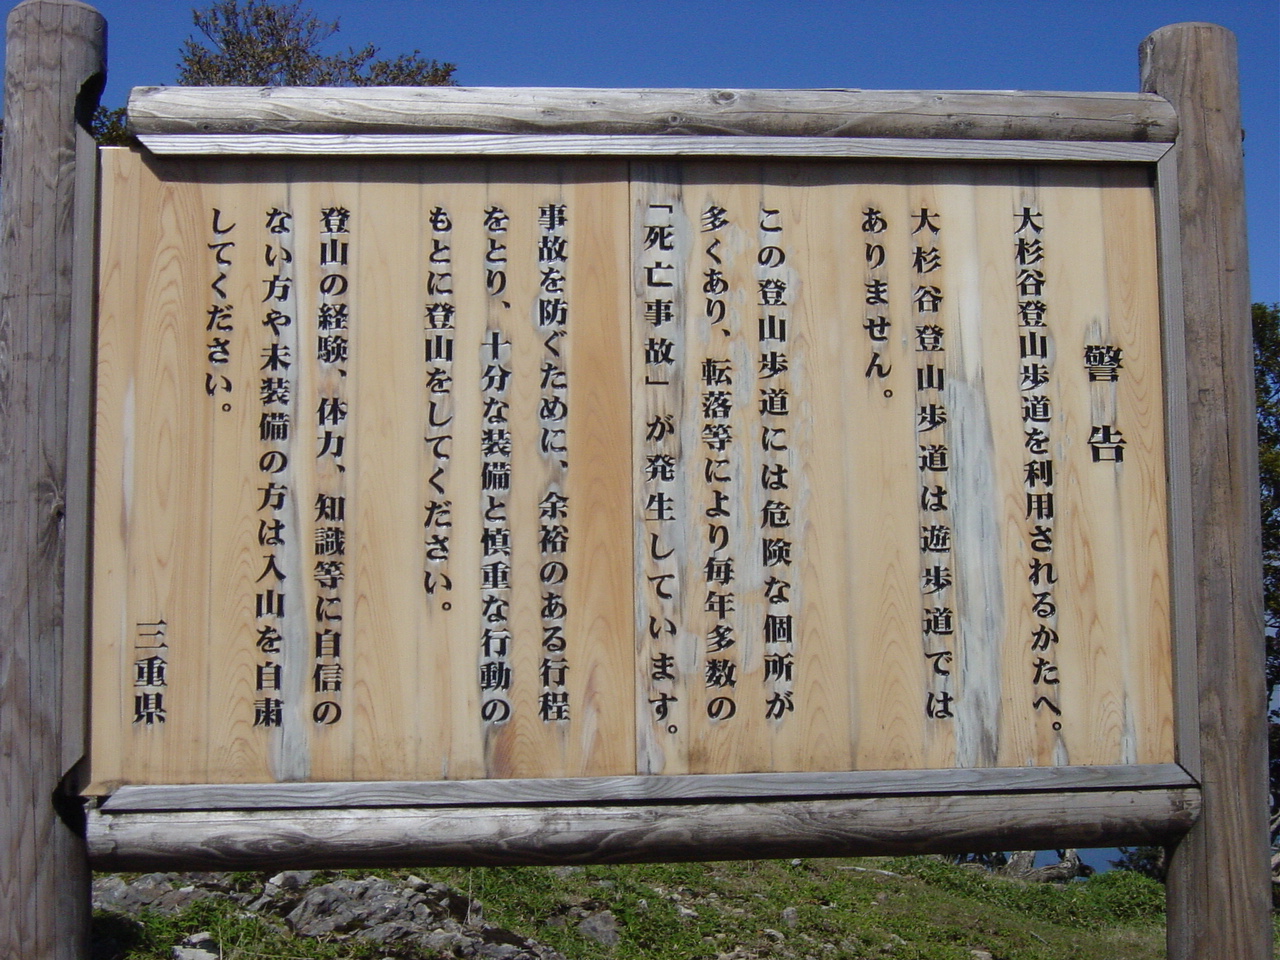 警告
大杉谷登山歩道を利用されるかたへ。
大杉谷登山歩道は遊歩道では
ありません。
この登山歩道には危険な個所が
多くあり、転落等により毎年多数の
「死亡事故」が発生しています。
事故を防ぐために、余裕のある行程
をとり、十分な装備と慎重な行動の
もとに登山をしてください。
登山の経験、体力、知識等に自信の
ない方や未装備の方は入山を自粛
してください。
三重県